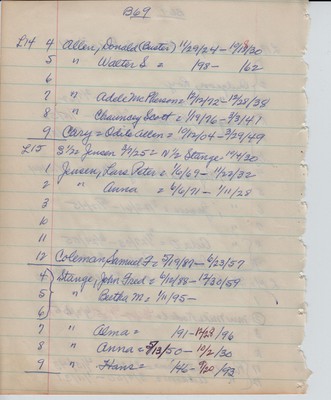 B69
L14 4 Allen, Donald (Buster) 11/29/24-10/13/30
5 " Walter S = 198- 162
6
7 " Addie McPherson = 12/12/72-12/28/38
8 " Chauncey Scott = 1/19/76-3/3/41
9 Cary = Odite Allen = 12/12/04-3/29/49
L15 S 1/2 Jensen 3/7/25 = N 1/2 Stange 10/4/30
1 Jensen, Lars Peter = 1/6/69-11/22/32
2 " Anna = 6/6/71-1/11/28
3
10
11
12 Coleman, Samuel F = 5/19/87-6/23/57
4 Stange, John Fred = 6/12/88-12/30/59
5 " Bertha M = 1/11/95-
6
7 " Alma = 191-12/28/96
8 " Anna = 8/13/50-10/2/30
9 " Hans = 146-9/20/33